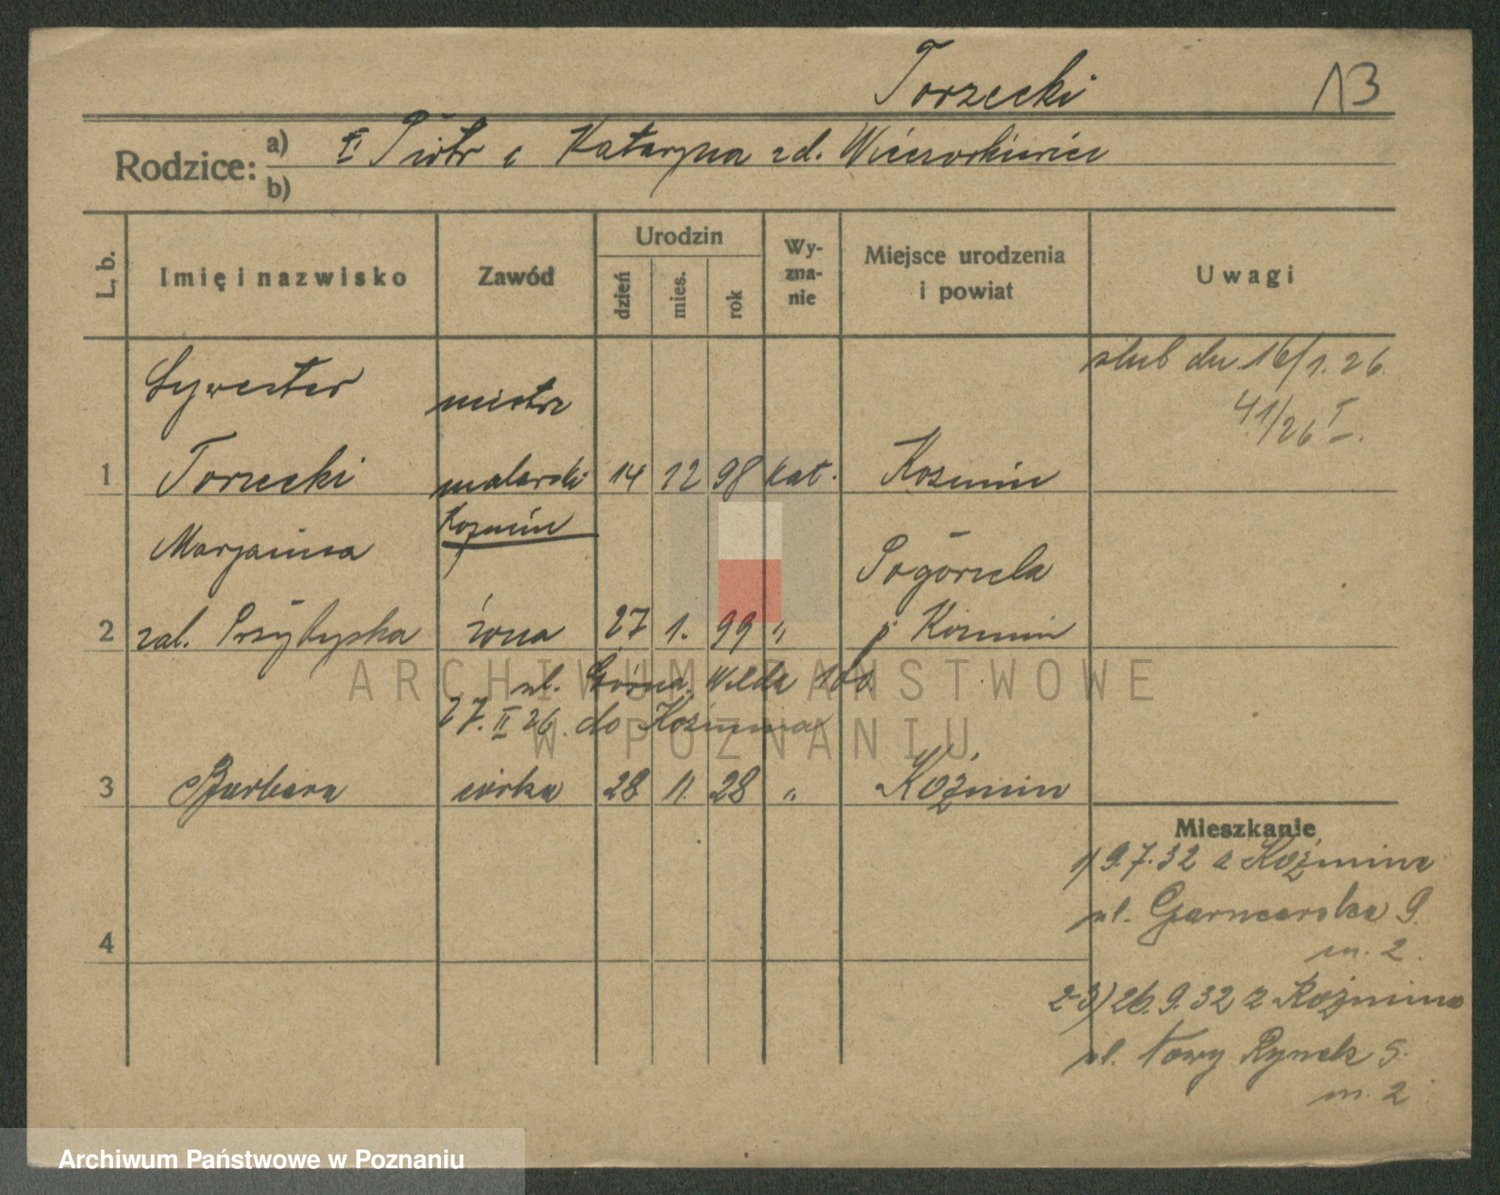 Torzecki
13
Rodzice: a) Piotr i Katarzyna zd. Wieczorkiewicz
b)
L. b.
Imię i nazwisko
Zawód
Urodzin
dzień
mies.
rok
Wy-
zna-
nie
Miejsce urodzenia
i powiat
Uwagi
Sylwester
mistrz
ślub dn. 16/1. 26.
41/26 I
1 Torzecki malarski 14 12 98 kat. Kozmin
Kozmin
Marjanna
Pogorzela
2 zal. Przybylska żona 27 1. 99 " p Kozmin
ul. Górna Wilda 100
27. II 26. do Kozmina
3 Barbara córka 28 11 28 " Koźmin
4
Mieszkanie
1) 9.7.32 z Koźmina
ul. Garncarska 9.
m. 2.
2-3) 26.9.32 z Koźmina
ul. Nowy Rynek 5.
m. 2
ARCHIWUM PAŃSTWOWE
W POZNANIU
Archiwum Państwowe w Poznaniu